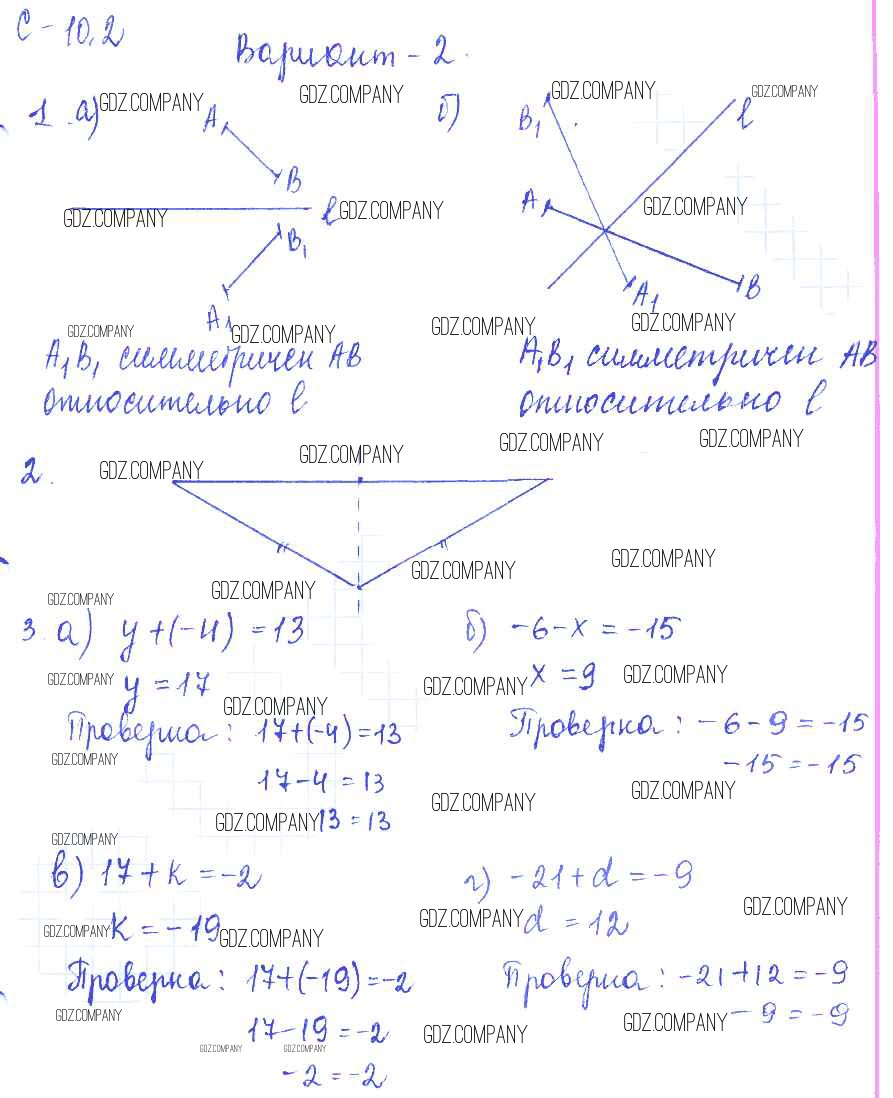 С-10.2
Вариант-2.
1. а) GDZ.COMPANY GDZ.COMPANY б) GDZ.COMPANY GDZ.COMPANY
A B₁ l
B A GDZ.COMPANY
GDZ.COMPANY l GDZ.COMPANY
B₁
A₁ A₁ B
GDZ.COMPANY GDZ.COMPANY GDZ.COMPANY GDZ.COMPANY
A₁B₁ симметричен AB
относительно l
A₁B₁ симметричен AB
относительно l
GDZ.COMPANY GDZ.COMPANY
2. GDZ.COMPANY GDZ.COMPANY
GDZ.COMPANY GDZ.COMPANY
GDZ.COMPANY GDZ.COMPANY
3. а) y+(-4)=13
GDZ.COMPANY y=17
GDZ.COMPANY
Проверка: 17+(-4)=13
GDZ.COMPANY
17-4=13
GDZ.COMPANY 13=13
б) -6-x=-15
GDZ.COMPANY x=9 GDZ.COMPANY
Проверка: -6-9=-15
-15=-15
GDZ.COMPANY GDZ.COMPANY
GDZ.COMPANY
в) 17+k=-2
GDZ.COMPANY k=-19 GDZ.COMPANY
Проверка: 17+(-19)=-2
GDZ.COMPANY
17-19=-2
GDZ.COMPANY GDZ.COMPANY
-2=-2
г) -21+d=-9
GDZ.COMPANY d=12 GDZ.COMPANY
Проверка: -21+12=-9
GDZ.COMPANY GDZ.COMPANY -9=-9